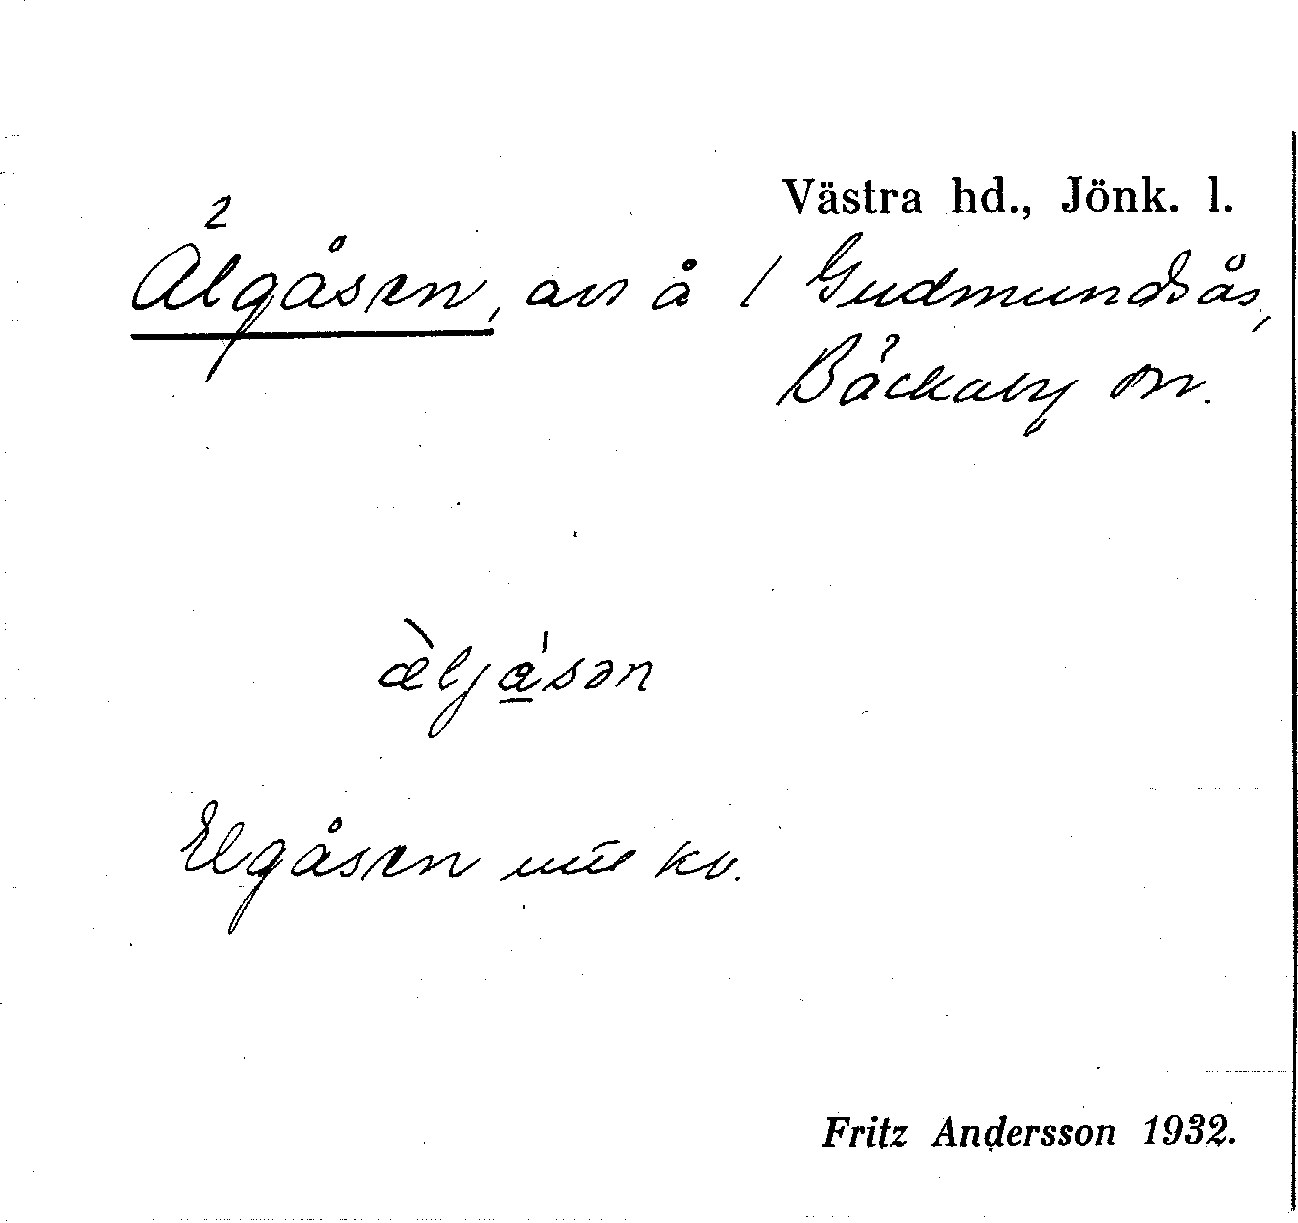 Västra hd., Jönk. l.
Älgåsen, avs å 1 Gudmundsås,
Bäckaby sn.
æ̀ljás​ən
Elgåsen
kv.
Fritz Andersson 1932.